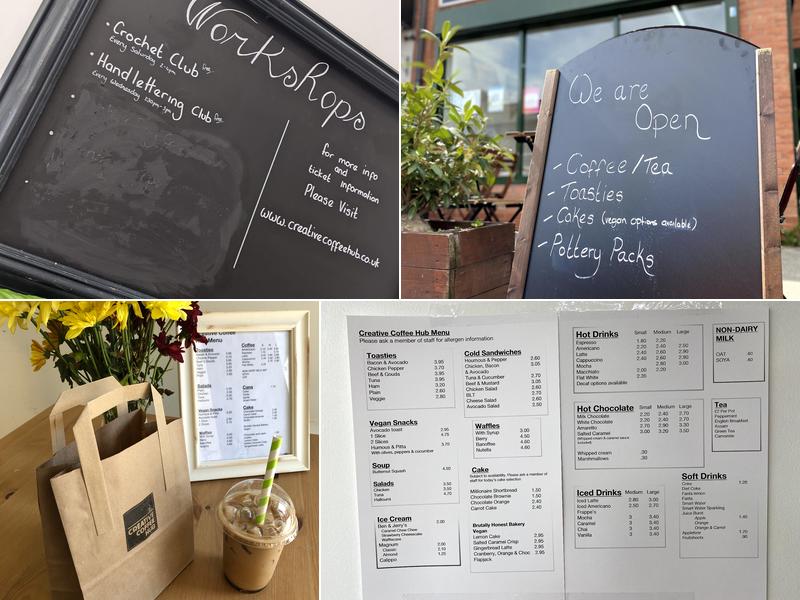 Workshops
• Crochet Club
Every Saturday 2-4pm
• Handlettering Club
Every Wednesday
for more info
and
ticket information
Please Visit
www.creativecoffeehub.co.uk
We are
Open
- Coffee/Tea
- Toasties
- Cakes (vegan options available)
- Pottery Packs
Creative Coffee
Hub Menu
Toasties
Coffee
Salads
Cans
Vegan Snacks
Cake
Waffles
CREATIVE
COFFEE
HUB
Creative Coffee Hub Menu
Please ask a member of staff for allergen information
Toasties
Bacon & Avocado 3.95
Chicken Pepper 3.70
Beef & Gouda 3.95
Tuna 3.95
Ham 3.20
Plain 2.60
Veggie 2.80
Vegan Snacks
Avocado toast
1 Slice 2.95
2 Slices 4.75
Houmous & Pitta 3.70
With olives, peppers & cucumber
Soup
Butternut Squash 4.50
Salads
Chicken 3.50
Tuna 4.70
Halloumi
Ice Cream
Ben & Jerry's 2.00
Caramel Chew Chew
Strawberry Cheesecake
Wafflecone
Magnum 2.00
Classic 2.10
Almond 1.25
Calippo
Cold Sandwiches
Houmous & Pepper 2.60
Chicken, Bacon 3.05
& Avocado
Tuna & Cucumber 2.70
Beef & Mustard 3.05
Chicken Salad 2.50
BLT 2.70
Cheese Salad 2.60
Avocado Salad 2.50
Waffles
With Syrup 3.00
Berry 4.50
Banoffee 4.60
Nutella 4.60
Cake
Subject to availability. Please ask a member of
staff for today's cake selection
Millionaire Shortbread 1.50
Chocolate Brownie 1.50
Chocolate Orange 2.40
Carrot Cake 2.40
Brutally Honest Bakery
Vegan
Lemon Cake 2.95
Salted Caramel Crisp 2.95
Gingerbread Latte 2.95
Cranberry, Orange & Choc 2.95
Flapjack
Hot Drinks Small Medium Large
Espresso 1.80 2.20
Americano 2.20 2.40 2.50
Latte 2.40 2.60 2.90
Cappuccino 2.40 2.60 2.90
Mocha 2.80 3.00
Macchiato 2.00 2.20
Flat White 2.35
Decaf options available
NON-DAIRY
MILK
OAT .40
SOYA .40
Hot Chocolate Small Medium Large
Milk Chocolate 2.20 2.40 2.70
White Chocolate 2.20 2.40 2.70
Amaretto 2.70 2.90 3.30
Salted Caramel 3.00 3.20 3.50
(Whipped cream & caramel sauce
included)
Whipped cream .30
Marshmallows .30
Tea
£2 Per Pot
Peppermint
English Breakfast
Assam
Green Tea
Camomile
Iced Drinks Medium Large
Iced Latte 2.80 3.00
Iced Americano 2.50 2.70
Frappe's
Mocha 3 3.40
Caramel 3 3.40
Chai 3 3.40
Vanilla 3 3.40
Soft Drinks
Coke 1.25
Diet Coke
Fanta lemon
Fanta
Smart Water
Smart Water Sparkling
Juice Burst
Apple 1.45
Orange
Orange & Carrot
Appletiser 1.70
Fruitshoots .90